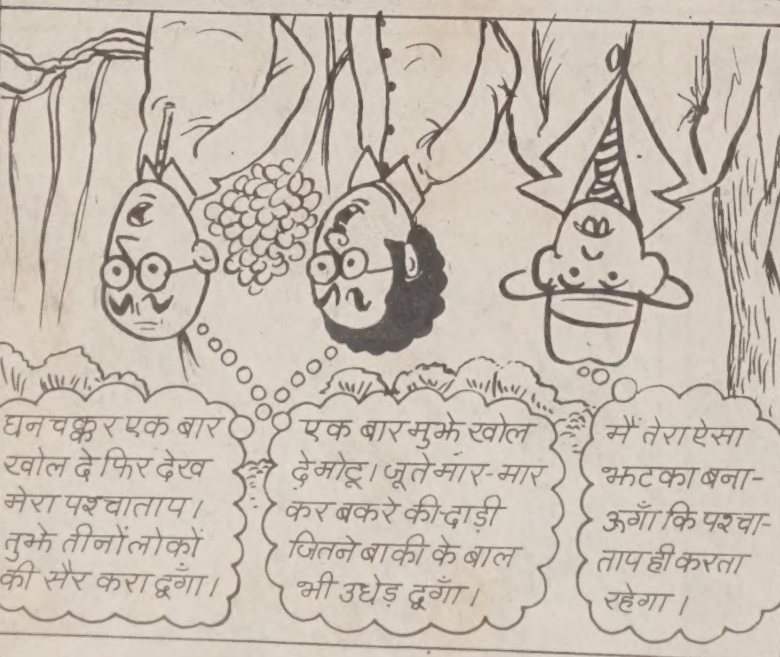 घनचक्कर एक बार
खोल दे फिर देख
मेरा पश्चाताप।
तुझे तीनों लोकों
की सैर करा दूगाँ।
एक बार मुझे खोल
दे मोटू। जूते मार-मार
कर बकरे की दाड़ी
जितने बाकी के बाल
भी उधेड़ दूगाँ।
मैं तेरा ऐसा
झटका बना-
ऊगाँ कि पश्चा-
ताप ही करता
रहेगा।